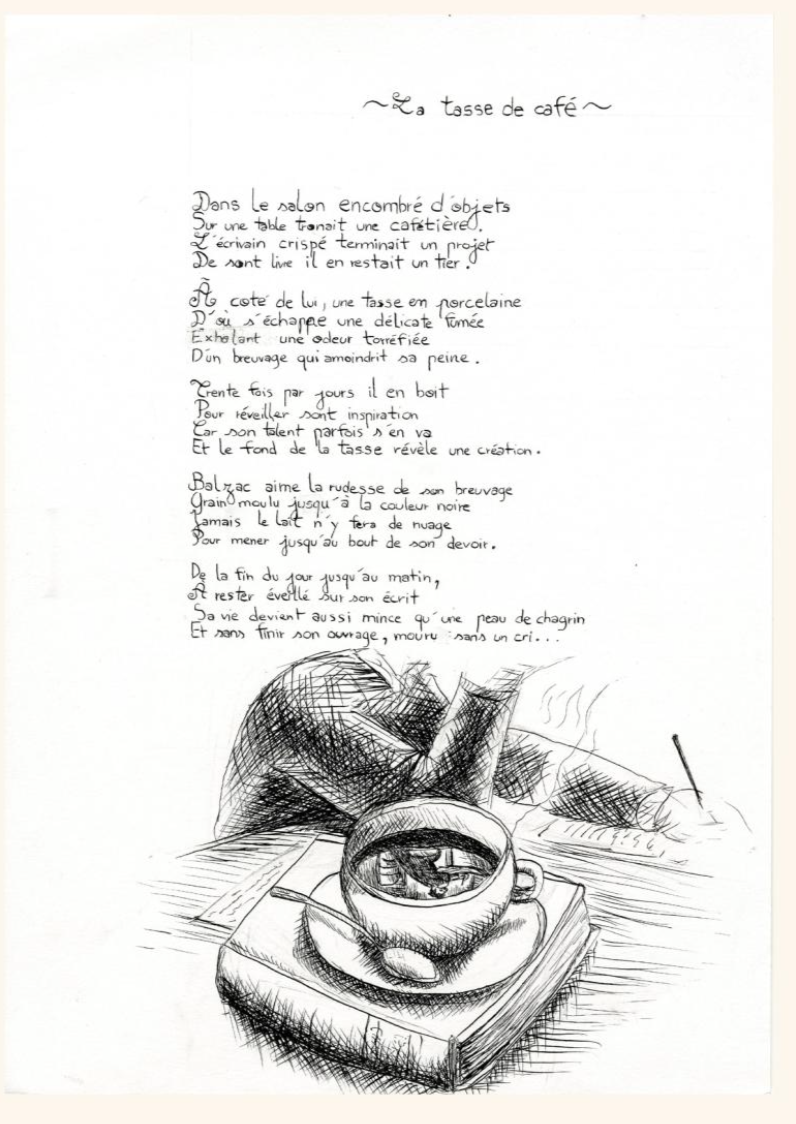 ~La tasse de café~
Dans le salon encombré d'objets
Sur une table tronait une cafétière.
L'écrivain crispé terminait un projet
De sont livre il en restait un tier.
À coté de lui, une tasse en porcelaine
D'où s'échappe une délicate fumée
Exhalant une odeur torréfiée
D'un breuvage qui amoindrit sa peine.
Trente fois par jours il en boit
Pour réveiller sont inspiration
Car son talent parfois s'en va
Et le fond de la tasse révèle une création.
Balzac aime la rudesse de son breuvage
Grain moulu jusqu'à la couleur noire
Jamais le lait n'y fera de nuage
Pour mener jusqu'au bout de son devoir.
De la fin du jour jusqu'au matin,
À rester éveillé sur son écrit
Sa vie devient aussi mince qu'une peau de chagrin
Et sans finir son ouvrage, mouru sans un cri...